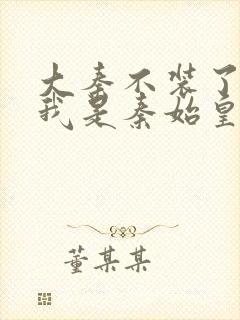 大秦不装了
我是秦始皇
董某某